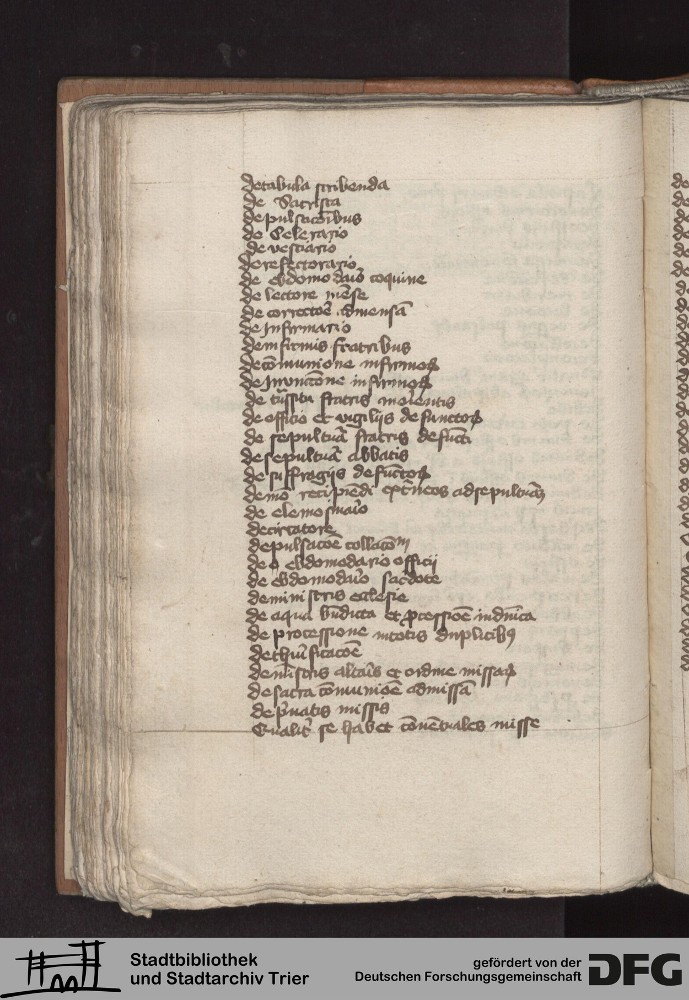 de tabula scribenda
de Sacrista
de pulsacōibus
de Celerario
de vestiario
de refectorario
de ebdomodaīo coquine
de lectore mēse
de correctoē admensā
de Infirmario
de infirmis fratribus
de cōmunione infirmoꝝ
de Inunctōne infirmoꝝ
de trāsitu fratris morientis
de officio et vigiliis defunctoꝝ
de sepulturā fratris defūcti
de sepulturā abbatis
de suffragiis defūctoꝝ
de mō recipiēdi extrāeos ad sepulturā
de elemosinaīo
de circatore
de pulsacōe collacōnū
de ebdomodario officii
de ebdomodaīo sacdote
de ministris ecclesie
de aqua bn̄dicta et ꝓcessiōe in dn̄ica
de processione in totis duplicibꝰ
de thuīficacōe
de mīstris altaīs et ordine missaꝝ
de sacra cōmuniōe ad missā
de pͥuatis missis
Qualitꝭ se habet cōuētuales misse
Stadtbibliothek
und Stadtarchiv Trier
gefördert von der
Deutschen Forschungsgemeinschaft
DFG